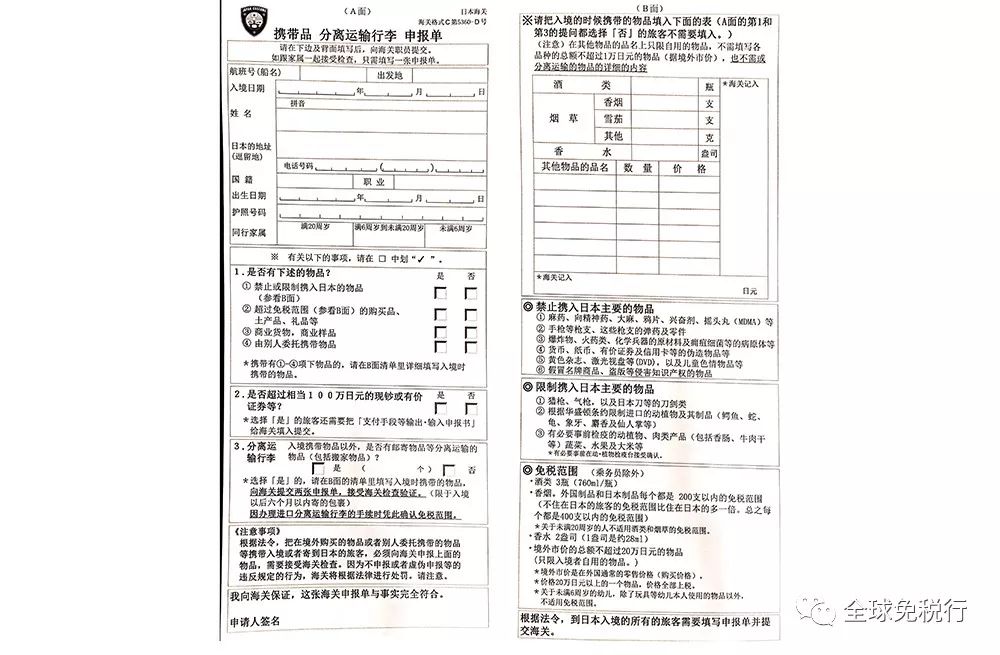 （A面）
日本海关
海关格式C第5360-D号
携带品 分离运输行李 申报单
请在下边及背面填写后，向海关职员提交。
如跟家属一起接受检查，只需填写一张申报单。
航班号(船名)
出发地
入境日期
年 月 日
拼音
姓 名
日本的地址
(逗留地)
电话号码 ( )
国 籍
职 业
出生日期
年 月 日
护照号码
同行家属
满20周岁
满6周岁到未满20周岁
未满6周岁
※ 有关以下的事项，请在 □ 中划“✓ ”。
1.是否有下述的物品？
是 否
① 禁止或限制携入日本的物品
（参看B面）
② 超过免税范围（参看B面）的购买品、
土产品、礼品等
③ 商业货物，商业样品
④ 由别人委托携带物品
*携带有①-④项下物品的，请在B面清单里详细填写入境时
携带的物品。
2.是否超过相当１００万日元的现钞或有价
证券等?
是 否
*选择「是」的旅客还需要把「支付手段等输出·输入申报书」
给海关填入提交。
3.分离运
输行李
入境携带物品以外，是否有邮寄物品等分离运输的
物品（包括搬家物品）？
是 （ 个） 否
*选择「是」的，请在B面的清单里填写入境时携带的物品，
向海关提交两张申报单，接受海关检查验证。（限于入境
以后六个月以内寄的包裹）
因办理进口分离运输行李的手续时凭此确认免税范围。
《注意事项》
根据法令，把在境外购买的物品或者别人委托携带的物品
等携带入境或者寄到日本的旅客，必须向海关申报上面的
物品，需要接受海关检查。因为不申报或者虚伪申报等的
违反规定的行为，海关将根据法律进行处罚。请注意。
我向海关保证，这张海关申报单与事实完全符合。
申请人签名
（B面）
※请把入境的时候携带的物品填入下面的表（A面的第1和
第3的提问都选择「否」的旅客不需要填入。）
（注意）在其他物品的品名上只限自用的物品，不需填写各
品种的总额不超过1万日元的物品（据境外市价），也不需或
分离运输的物品的详细的内容
酒 类
瓶
*海关记入
烟 草
香烟
支
雪茄
支
其他
克
香 水
盎司
其他物品的品名
数 量
价 格
*海关记入
日元
◎ 禁止携入日本主要的物品
① 麻药、向精神药、大麻、鸦片、兴奋剂、摇头丸（MDMA）等
② 手枪等枪支、这些枪支的弹药及零件
③ 爆炸物、火药类、化学兵器的原材料及痈疽细菌等的病原体等
④ 货币、纸币、有价证券及信用卡等的伪造物品等
⑤ 黄色杂志、激光视盘等(DVD)，以及儿童色情物品等
⑥ 假冒名牌商品、盗版等侵害知识产权的物品
◎ 限制携入日本主要的物品
① 猎枪、气枪，以及日本刀等的刀剑类
② 根据华盛顿条约限制进口的动植物及其制品（鳄鱼、蛇、
龟、象牙、麝香及仙人掌等）
③ 有必要事前检疫的动植物、肉类产品（包括香肠、牛肉干
等）蔬菜、水果及大米等
*有必要事前在动·植物检疫台接受确认。
◎ 免税范围 （乘务员除外）
·酒类 3瓶（760ml/瓶）
·香烟。外国制品和日本制品每个都是 200支以内的免税范围
（不住在日本的旅客的免税范围比住在日本的多一倍。总之每
个都是400支以内的免税范围）
*关于未满20周岁的人不适用酒类和烟草的免税范围。
·香水 2盎司（1盎司是约28ml）
·境外市价的总额不超过20万日元的物品
（只限入境者自用的物品。）
*境外市价是在外国通常的零售价格（购买价格）。
*价格20万日元以上的一个物品，价格全部上税。
*关于未满6周岁的幼儿，除了玩具等幼儿本人使用的物品以外，
不适用免税范围。
根据法令，到日本入境的所有的旅客需要填写申报单并提
交海关。
全球免税行